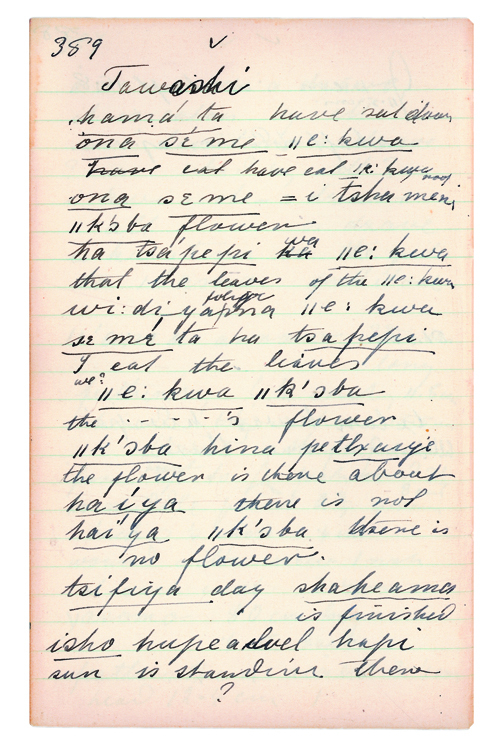 389
Tawashi
hamá ta have sat down
ona sé me ǁe: kwa
have eat have eat ǁe: kwa
ona seme = i tsha
ǁk'ɔba flower
ha tsápepi wa ǁe: kwa
that the leaves of the ǁe: kwa
wi: di ǁe: kwa
se mé ta ha tsapepi
I eat the leaves
we?
ǁe: kwa ǁk'ɔba
the - - - - 's flower
ǁk'ɔba hina
the flower is there about
haíya there is not
hai'ya ǁk'ɔba there is
no flower.
tsifiya day shaheama
is finished
isho hapi
sun is standing there
?